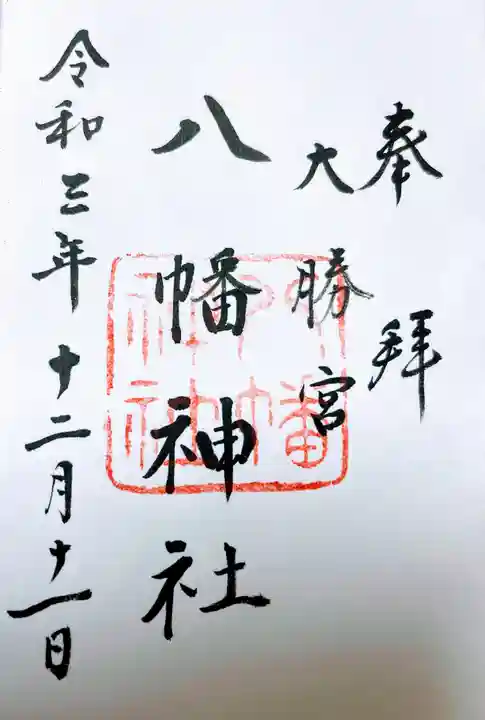 奉拝
大勝宮
八幡神社
令和三年十二月十一日
八幡
神社